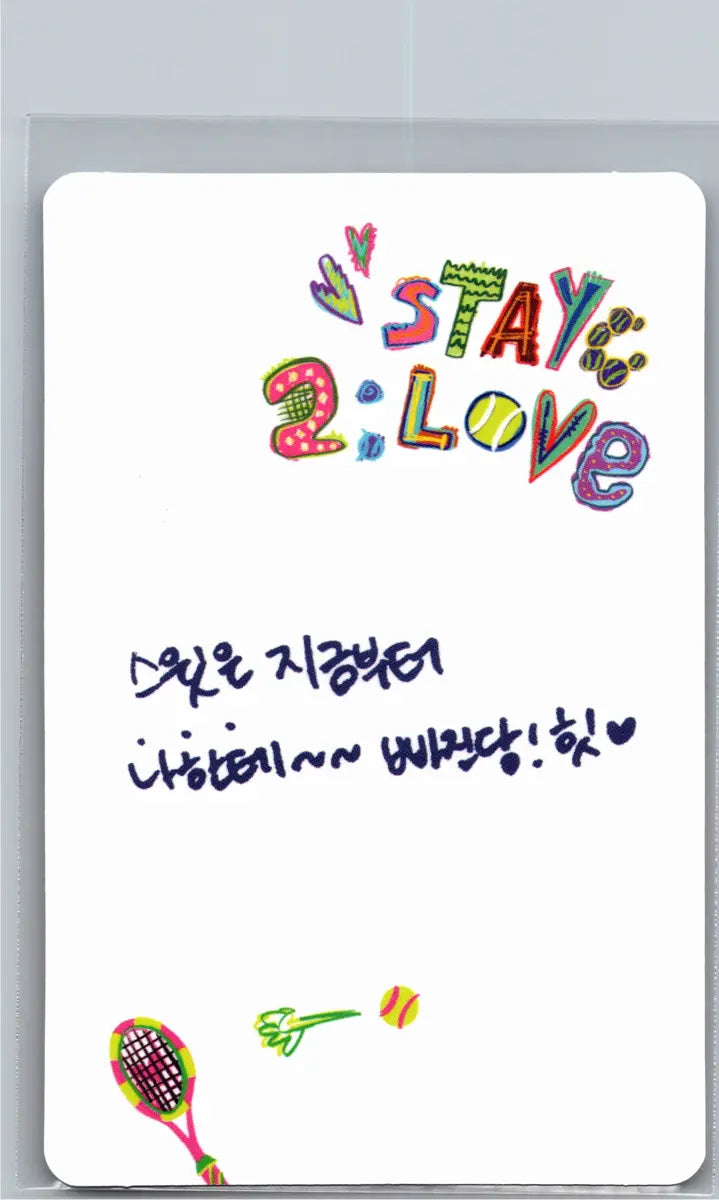 STAYC
2:LOVe
스윗은 지금부터
나한테~~ 빠진당! 힛♥